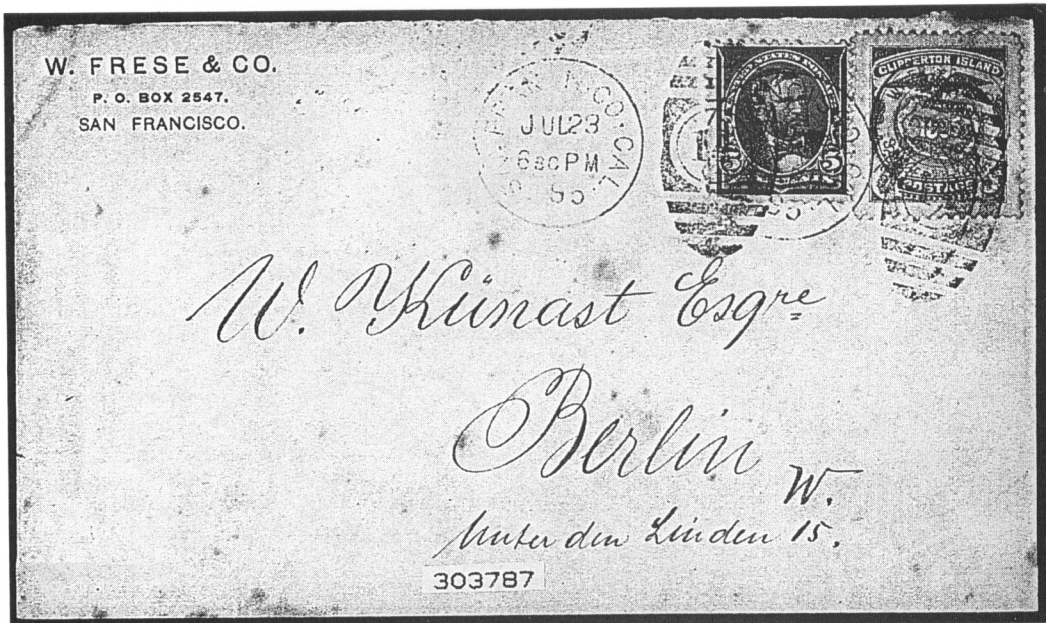 W. FRESE & CO.
P. O. BOX 2547.
SAN FRANCISCO.
SAN FRANCISCO. CAL.
JUL 23
6 30 PM
95
5 5
CLIPPERTON ISLAND
POSTAGE
W. Künast Esqre
Berlin W.
Unter den Linden 15.
303787